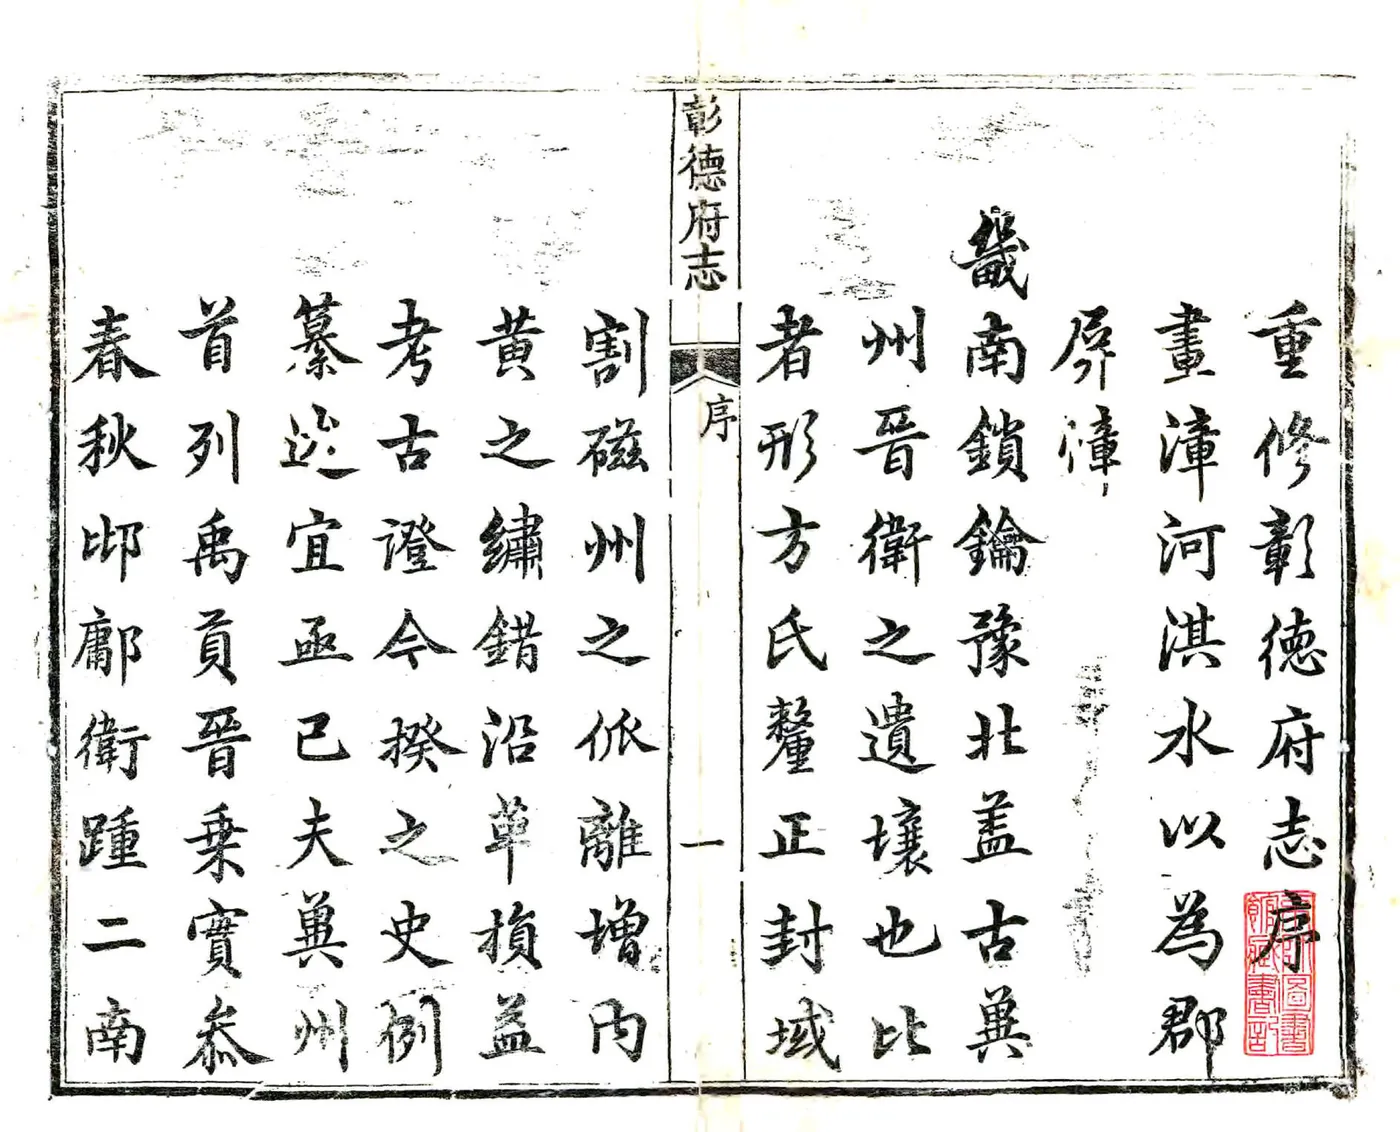 重修彰德府志序
畫漳河淇水以為郡
屏障
畿南鎖鑰豫北蓋古冀
州晉衛之遺壤也比
者形方氏釐正封域
彰德府志
序
一
割磁州之派離增內
黃之繡錯沿革損益
考古證今揆之史例
纂造宜亟已夫冀州
首列禹貢晉乘實叅
春秋邶鄘衛踵二南